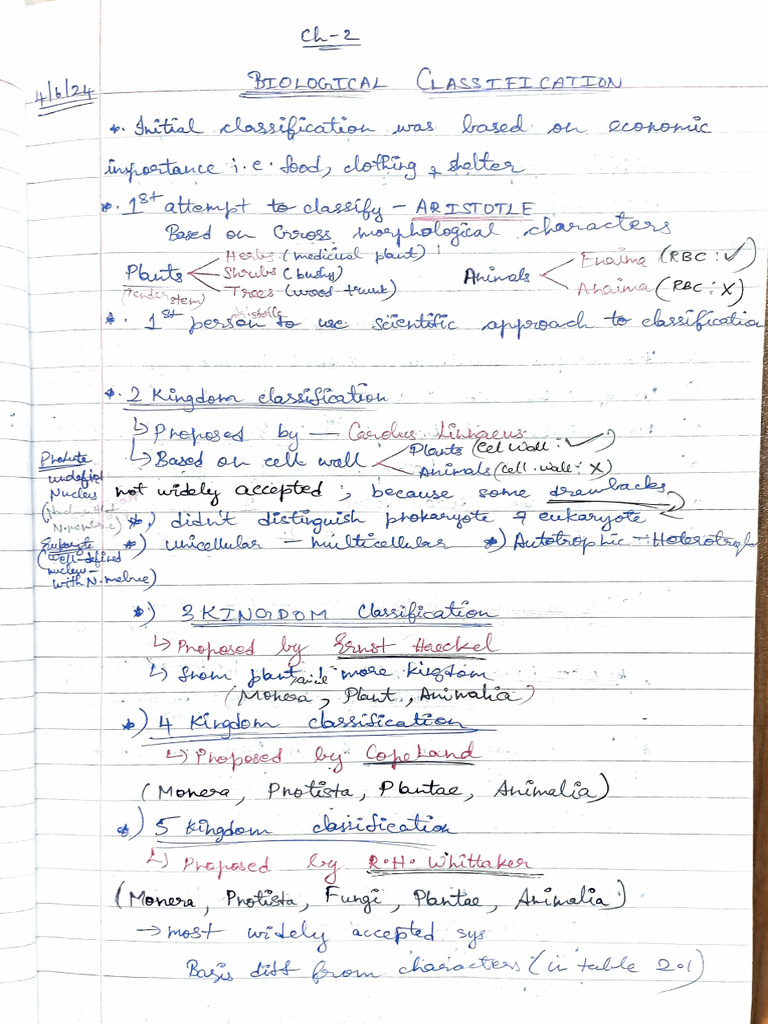 Ch-2
4/6/24
BIOLOGICAL CLASSIFICATION
*. Initial classification was based on economic
importance i.e. food, clothing & shelter
*. 1st attempt to classify - ARISTOTLE
Based on Gross morphological characters
Plants
(Tender stem)
Herbs (medicinal plant)
Shrubs (bushy)
Trees (wood trunk)
Animals
Enaima (RBC : ✓)
Anaima (RBC : X)
Aristotle
*. 1st person to use scientific approach to classification
*. 2 Kingdom classification
↳ Proposed by — Carolus Linnaeus.
↳ Based on cell wall
Plants (Cell Wall : ✓)
Animals (cell.wall : X)
not widely accepted ; because some drawbacks
*) didn't distinguish prokaryote & eukaryote
*) unicellular - multicellular *) Autotrophic - Hoterotroph
undefind
Nucleus
(well-defined
nucleus-
with N.mebne)
*) 3 KINGDOM Classification
↳ Proposed by Ernst Haeckel
↳ from plant more kingtom
(Monera, Plant, Animalia)
*) 4 Kingdom classification
↳ Proposed by Copeland
(Monera, Protista, Plantae, Animalia)
*) 5 Kingdom classification
↳ Proposed by R.H. Whittaker
(Monera, Protista, Fungi, Plantae, Animalia)
→ most widely accepted sys
Basis diff from characters (in table 2.1)